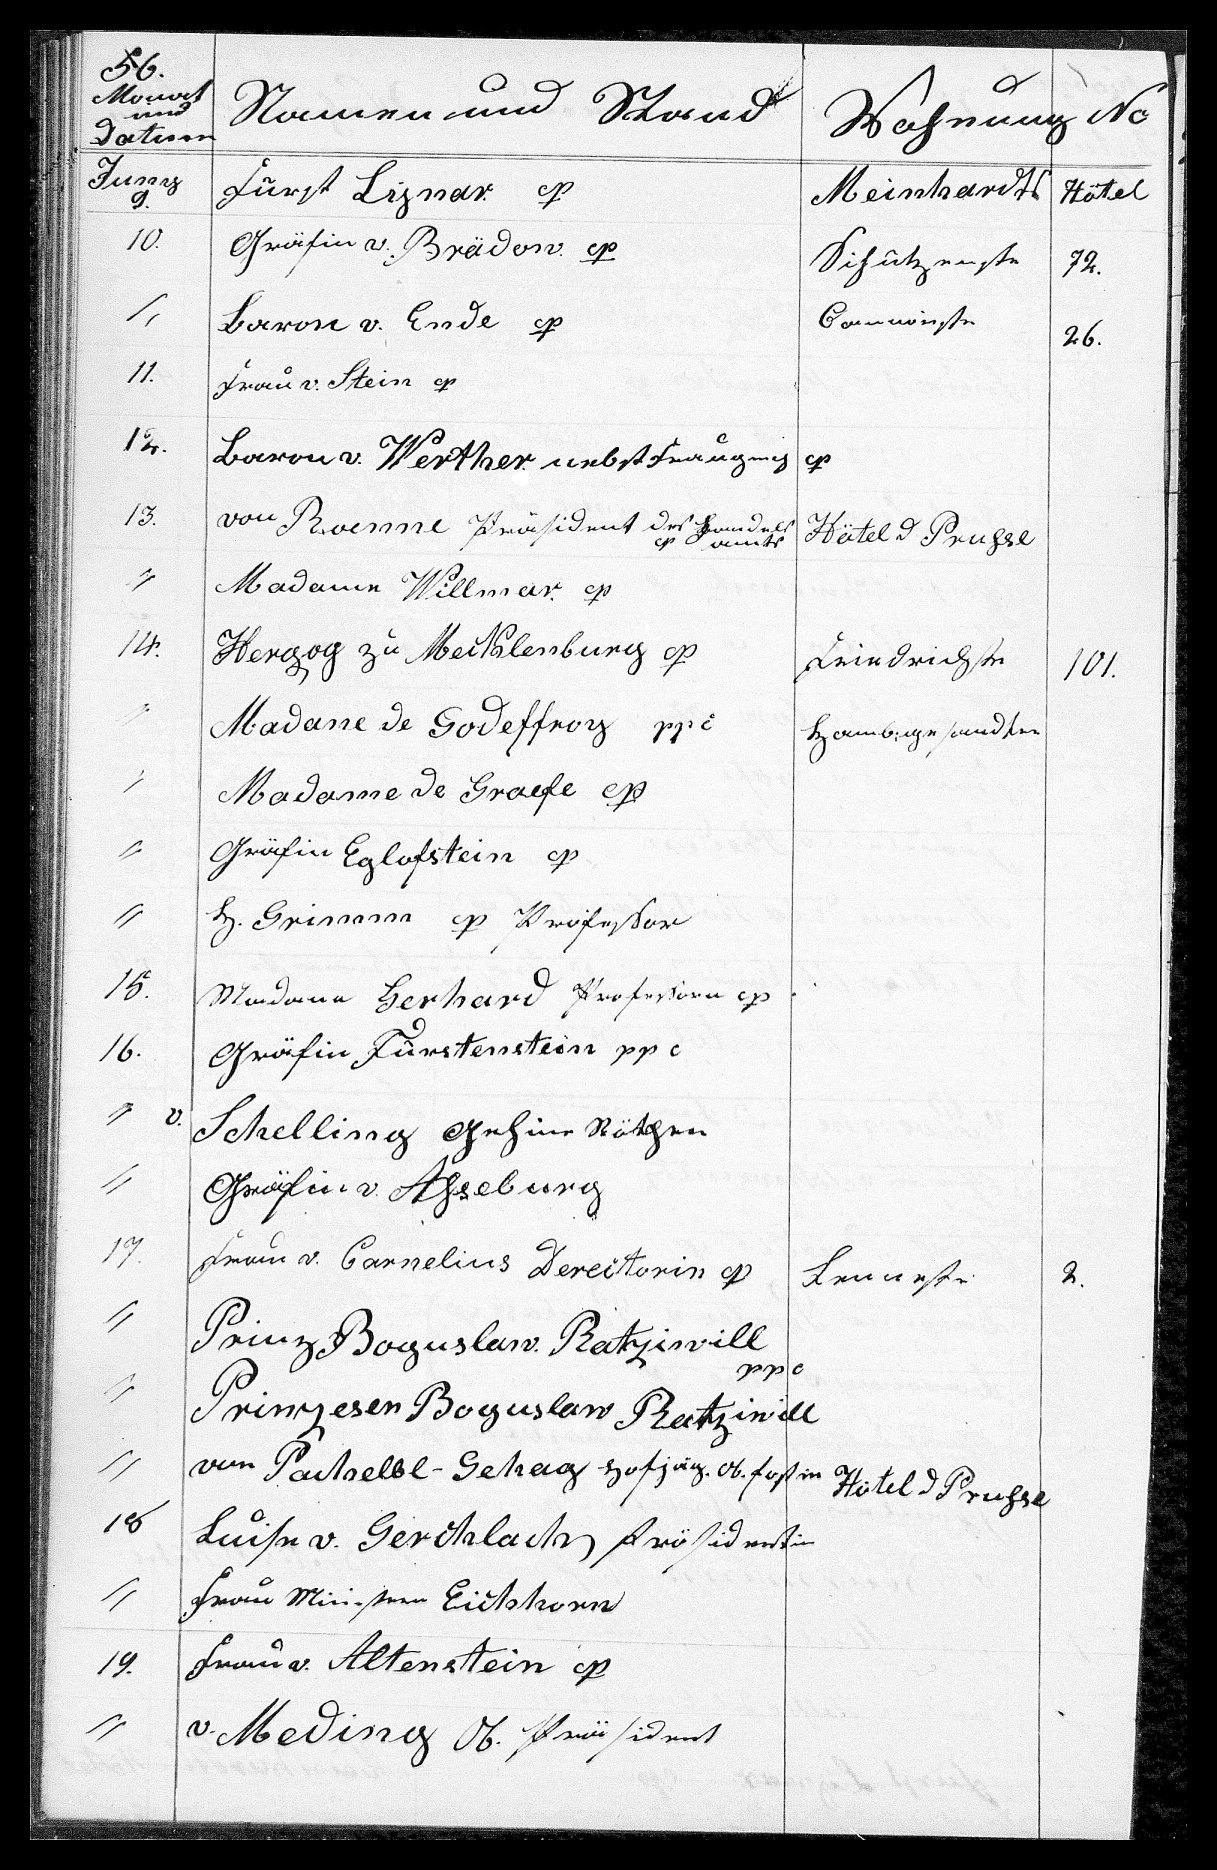 56.
Monat und Datum Namen und Stand Wohnung No
Juny 9. Fürst Lignar. cp Meinhardts Hôtel
10. Gräfin v. Brädow. cp Schützenste 72.
" Baron v. Ende cp Cannonieste 26.
11. Frau v. Stein cp
12. Baron v. Werther nebst Frau cp
13. von Roenne Präsident des Handels amts cp Hôtel d Prusse
" Madame Willmar. cp
14. Herzog zu Mecklenburg cp Friedrichste 101.
" Madane de Godeffroy ppc Hamb: gesandten
" Madame de Graefe cp
" Gräfin Eglofstein cp
" H. Grimm cp Profeßor
15. Madame Gerhard Profeßorn cp
16. Gräfin Fürstenstein ppc
" v. Schelling Gehime Räthen
" Gräfin v. Aßeburg
17. Frau v. Carnelius Derectorin cp Lenneste 2.
" Prinz Boguslaw. Ratziwill
ppc
" Prinzesen Boguslaw Ratziwill
" von Pachelbl-Gehag Hofjäg. Ob. fostin Hôtel d Prusse
18 Luise v. Gerchlach Präsidentin
" Frau Ministern Eichhorn
19. Frau v. Altenstein cp
" v. Meding Ob. Präsident